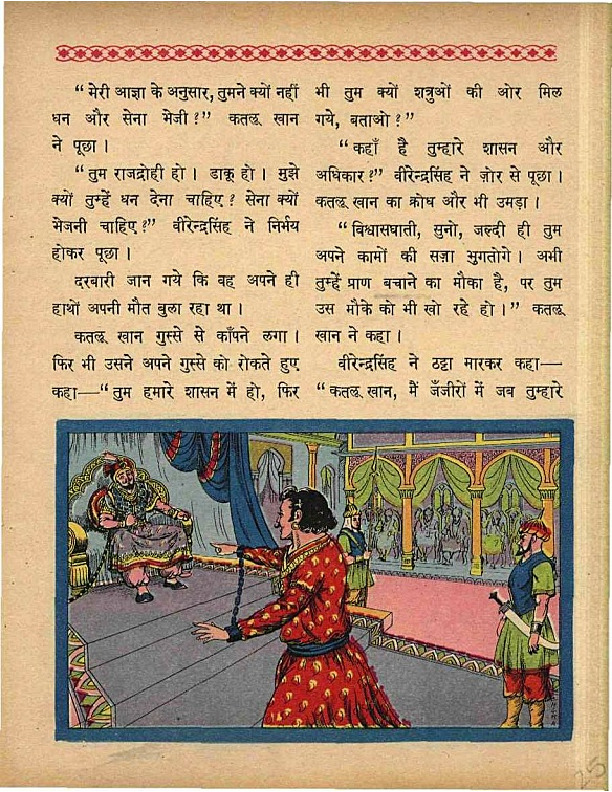 “मेरी आज्ञा के अनुसार, तुमने क्यों नहीं
धन और सेना भेजी?” कतलू खान
ने पूछा।
“तुम राजद्रोही हो। डाकू हो। मुझे
क्यों तुम्हें धन देना चाहिए? सेना क्यों
भेजनी चाहिए?” वीरेन्द्रसिंह ने निर्भय
होकर पूछा।
दरबारी जान गये कि वह अपने ही
हाथों अपनी मौत बुला रहा था।
कतलू खान गुस्से से काँपने लगा।
फिर भी उसने अपने गुस्से को रोकते हुए
कहा—“तुम हमारे शासन में हो, फिर
भी तुम क्यों शत्रुओं की ओर मिल
गये, बताओ?”
“कहाँ है तुम्हारे शासन और
अधिकार?” वीरेन्द्रसिंह ने ज़ोर से पूछा।
कतलू खान का क्रोध और भी उमड़ा।
“विश्वासघाती, सुनो, जल्दी ही तुम
अपने कामों की सज़ा भुगतोगे। अभी
तुम्हें प्राण बचाने का मौका है, पर तुम
उस मौके को भी खो रहे हो।” कतलू
खान ने कहा।
वीरेन्द्रसिंह ने ठट्ठा मारकर कहा—
“कतलू खान, मैं जँजीरों में जब तुम्हारे
25